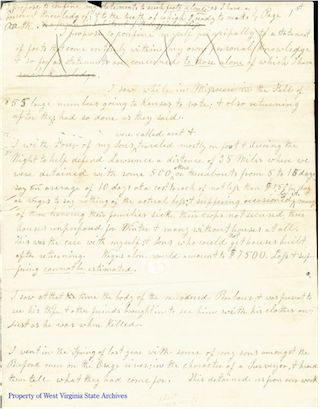 propose to confine my statements to such facts alone as I have a
personal knowledge of & to the truth of which I am ready to make Page 1st
I propose to confine myself principally to a statement
of facts that come entirely within my own personal knowledge
& so far as statements are concerned to those alone of which I have
such knowledge
I saw while in Missouri in the Fall of
55 large numbers going to Kansas to vote; & also returning
after they had so done as they said.
were called out &
I with Four of my Sons traveled mostly on foot & during the
Night to help defend Lawrence a distance of 35 Miles where we
were detained with some 500 others or thereabouts from 5 to 15 days
say an average of 10 days at a cost to each of not less than $1.50 per day
as wages to say nothing of the actual loss & suffering occasioned to many
of them leaving their families sick, their crops not secured, their
houses unprepared for Winter & many without houses at all.
This was the case with myself & Sons who could not get houses built
after returning. Wages alone would amount to $7500. Loss & suf-
fering cannot be estimated.
I saw at that time the body of the murdered Barber & was present to
see his Wife & other friends brought in to see him with his clothes on
Just as he was when killed.
I went in the Spring of last year with some of my Sons amongst the
Buford men on the Osage in the character of a Surveyor, & heard
them tell what they had come for. This detained us from our work
Property of West Virginia State Archives